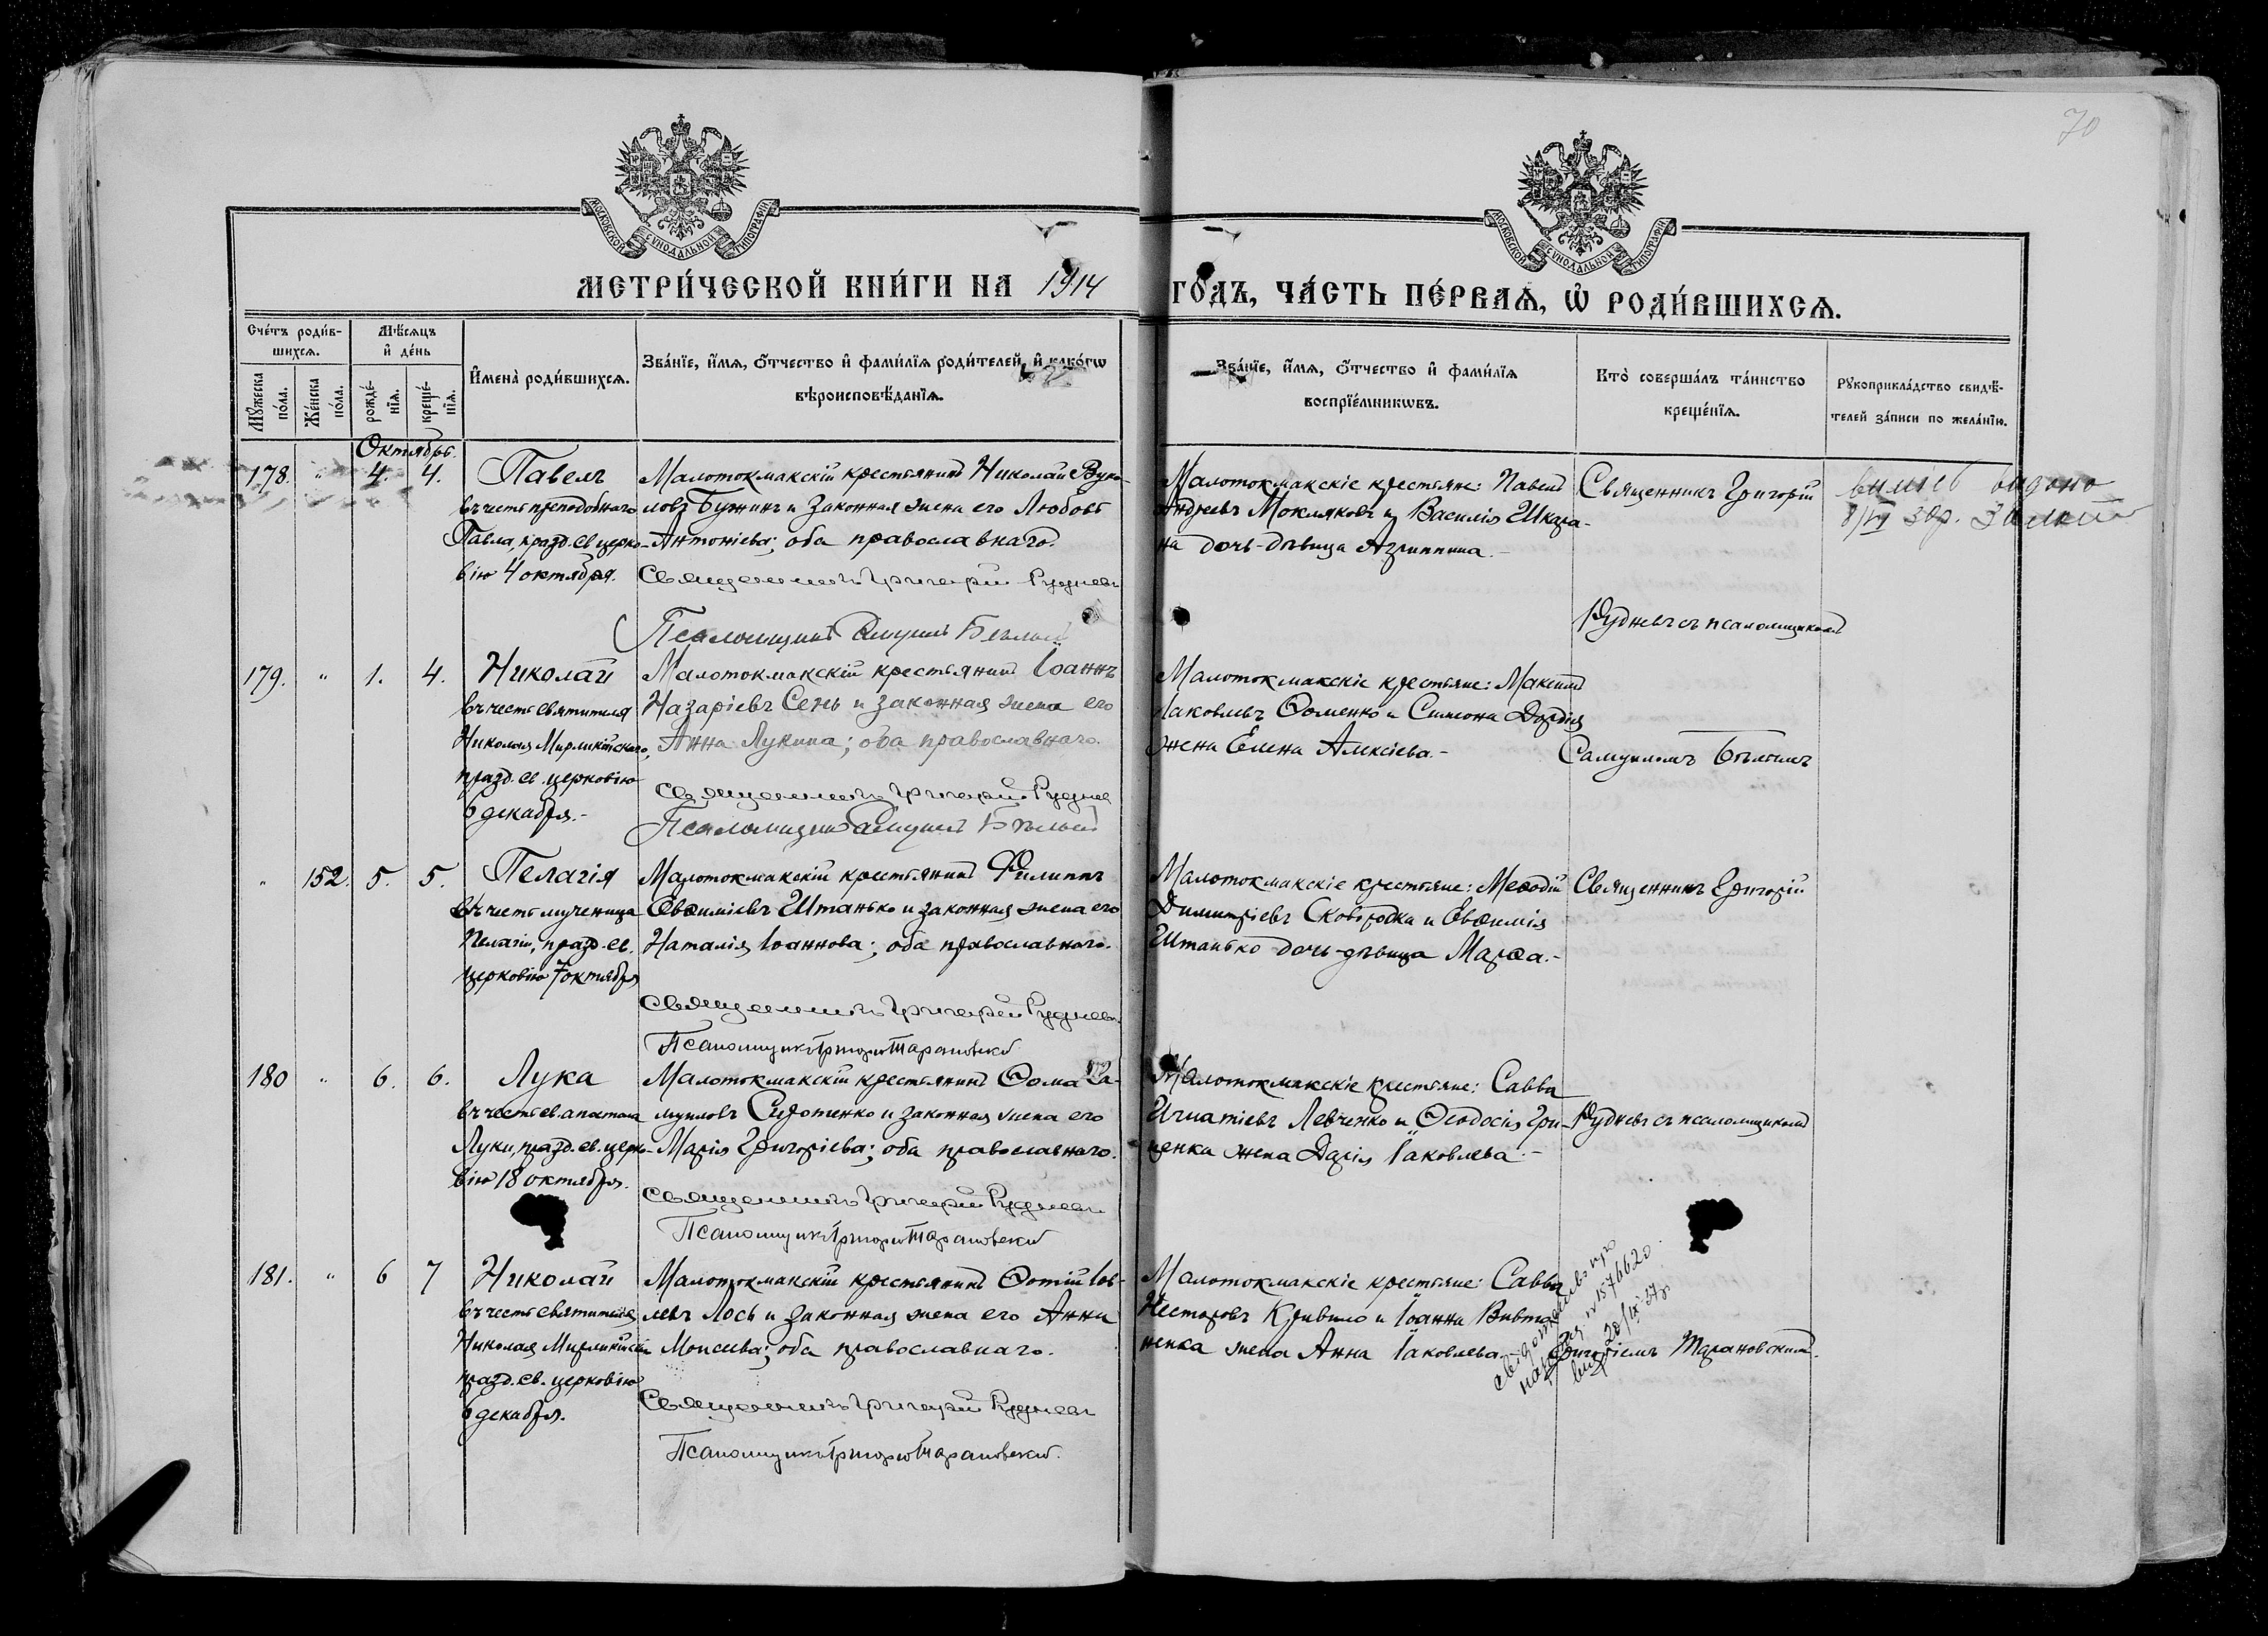 70
МОСКОВСКОЙ СѴНОДАЛЬНОЙ ТИПОГРАФІИ
МОСКОВСКОЙ СѴНОДАЛЬНОЙ ТИПОГРАФІИ
МЕТРИ́ЧЕСКОЙ КНИ́ГИ НА 1914 ГО́ДЪ, ЧА́СТЬ ПЕ́РВАѦ, Ѡ҆ РОДИ́ВШИХСѦ.
Сче́тъ роди́в-
шихсѧ.
Мѣ́сѧцъ
и҆ де́нь
Мꙋ́жеска
по́ла.
Же́нска
по́ла.
рожде́-
нїѧ.
креще́-
нїѧ.
И҆мена̀ роди́вшихсѧ.
Зва́нїе, и҆́мѧ, ѻ҆́тчество и҆ фами́лїѧ роди́телей, и҆ како́гѡ
вѣроисповѣ́данїѧ.
Зва́нїе, и҆́мѧ, ѻ҆́тчество и҆ фами́лїѧ
воспрїе́мникѡвъ.
Кто̀ соверша́лъ та́инство
креще́нїѧ.
Рꙋкоприкла́дство свидѣ́-
телей за́писи по жела́нїю.
Октябрь.
178. " 4. 4. Павелъ
въ честь преподобнаго
Павла, празд. св. церко-
вію 4 октября.
Малотокмакскій крестьянинъ Николай Вуко-
ловъ Бужинъ и законная жена его Любовь
Антоніева; оба православнаго.
Священникъ Григорій Рудневъ
Псаломщикъ Самуилъ Бѣлый
Малотокмакскіе крестьяне: Павелъ
Андреевъ Мокляковъ и Василія Шкара-
на дочь-дѣвица Агриппина.-
Священникъ Григорій
Рудневъ съ псаломщикомъ
видано
179. " 1. 4. Николай
въ честь святителя
Николая Мирликійскаго,
празд. св. церковію
6 декабря.-
Малотокмакскій крестьянинъ Іоаннъ
Назаріевъ Сень и законная жена его
Анна Лукина; оба православнаго.
Священникъ Григорій Рудневъ
Псаломщикъ Самуилъ Бѣлый
Малотокмакскіе крестьяне: Максимъ
Іаковлевъ Ѳоменко и Симеона
жена Елена Алексіева.-
Самуиломъ Бѣлымъ
" 152. 5. 5. Пелагія
въ честь мученицы
Пелагіи, празд. св.
церковію 7 октября
Малотокмакскій крестьянинъ Филиппъ
Евѳиміевъ Штанько и законная жена его
Наталія Іоаннова; оба православнаго.
Священникъ Григорій Рудневъ
Псаломщикъ Григорій Тарановскій
Малотокмакскіе крестьяне: Меѳодій
Димитріевъ Сковородка и Евѳимія
Штанько дочь-дѣвица Марѳа.-
Священникъ Григорій
180 " 6. 6. Лука
въ честь св. апостола
Луки, празд. св. церко-
вію 18 октября.
Малотокмакскій крестьянинъ Ѳома Са-
муиловъ Сиротенко и законная жена его
Марія Григоріева; оба православнаго.
Священникъ Григорій Рудневъ
Псаломщикъ Григорій Тарановскій
Малотокмакскіе крестьяне: Савва
Игнатіевъ Левченко и Ѳеодосія Гри-
ценка жена Дарія Іаковлева.-
Рудневъ съ псаломщикомъ
181. " 6 7 Николай
въ честь святителя
Николая Мирликійскаго
празд. св. церковію
6 декабря.
Малотокмакскій крестьянинъ Ѳотій Іов-
левъ Лось и законная жена его Анна
Моисеева; оба православнаго.
Священникъ Григорій Рудневъ
Псаломщикъ Григорій Тарановскій.
Малотокмакскіе крестьяне: Савва
Несторовъ Кривило и Іоанна Вивта-
ненка жена Анна Іаковлева.
Григоріемъ Тарановскимъ.
свідоцтво про
народження №1576620
вид. 20/IX 37р.